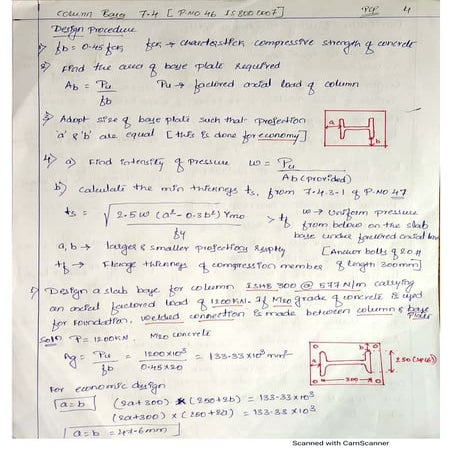 Column Base 7.4 [P.NO 46 IS 800 2007] PCP 4
Design Procedure
1) fb = 0.45 fck fck → characteristick compressive strength of concrete
2) Find the area of base plate required
Ab = Pu / fb Pu → factored axial load of column
3) Adopt size of base plate such that projection
'a' & 'b' are equal [this is done for economy]
a
b
4) a) Find intensity of pressure w = Pu / Ab (provided)
b) calculate the min thickness ts, from 7.4.3.1 of P.NO 47
ts = √ 2.5 w (a² - 0.3b²) γmo / fy > tf w → Uniform pressure
from below on the slab
base under factored axial load
a, b → larger & smaller projection [Anchor bolts of 20 #
tf → Flange thickness of compression member & length 300mm]
Design a slab base for column ISHB 300 @ 577 N/m carrying
an axial factored load of 1200KN. If M20 grade of concrete is used
for foundation. welded connection is made between column & base plate
Soln P = 1200KN. M20 concrete
Ag = Pu / fb = 1200×10³ / 0.45×20 = 133.33×10³ mm²
a
b
300
250
For economic design
a=b (2a+300) × (250+2b) = 133.33×10³
(2a+300) × (250+2a) = 133.33×10³
a = b = 47.6mm
Scanned with CamScanner